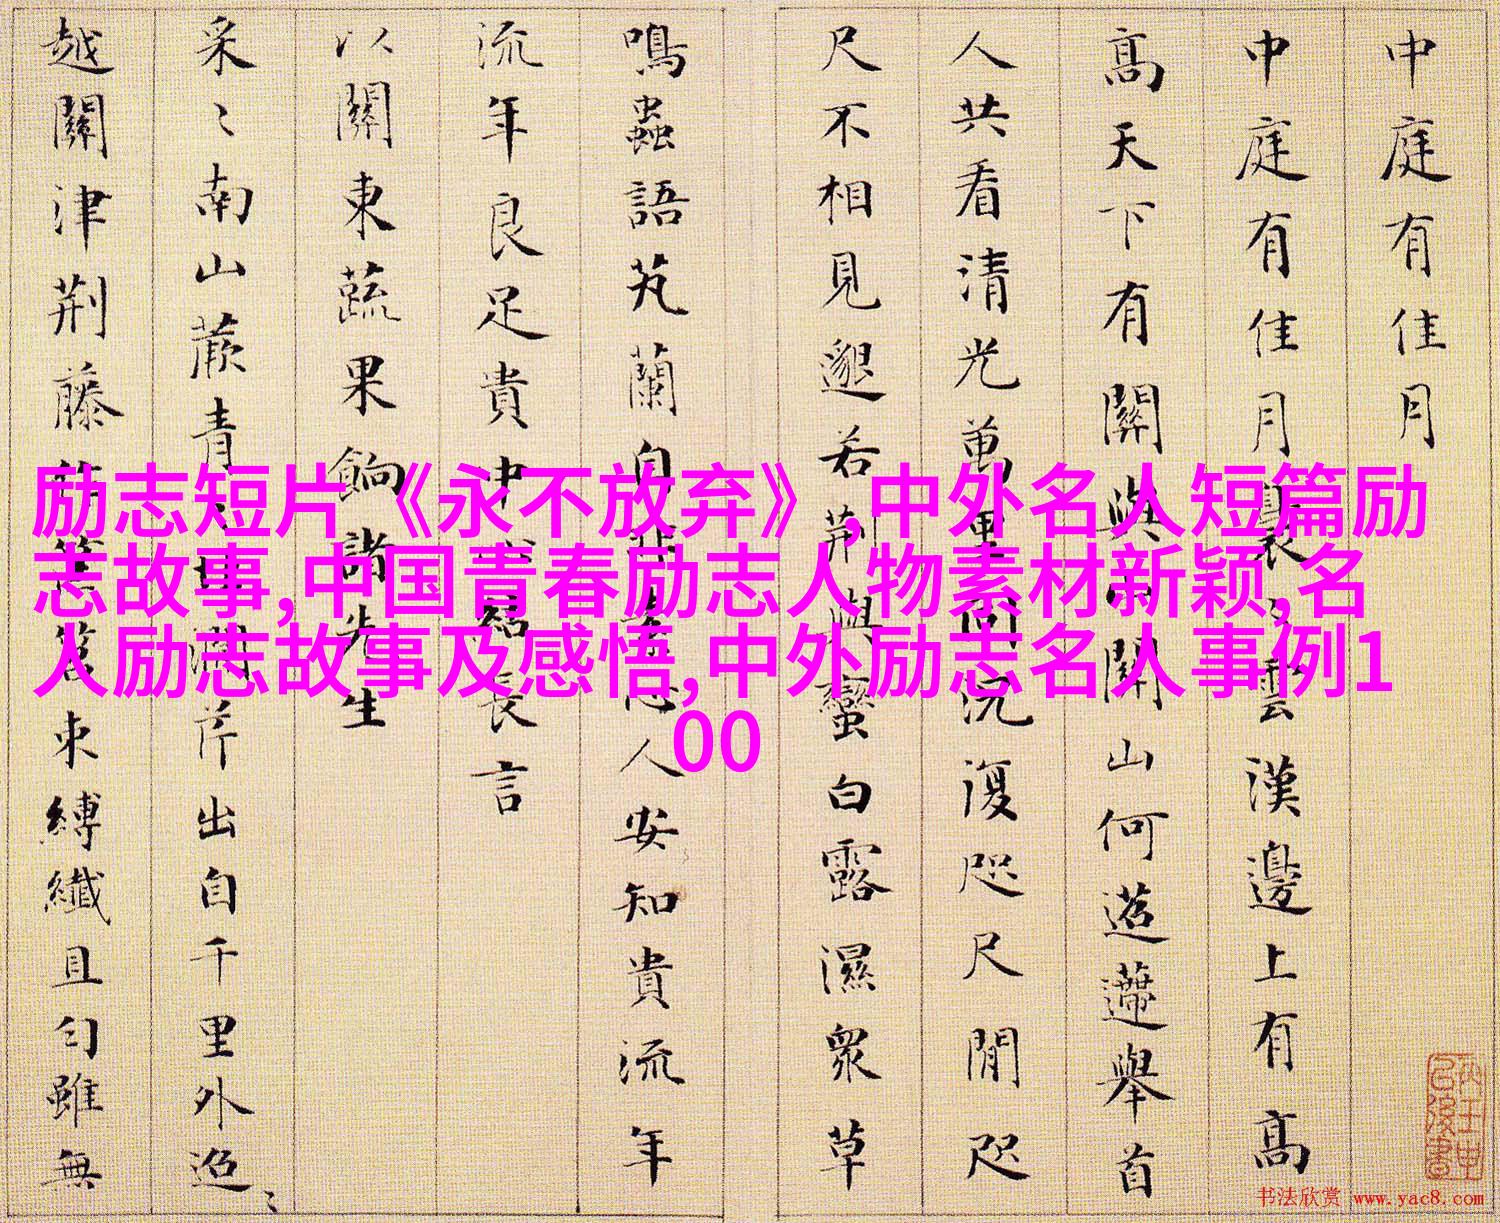 中庭有佳月
中庭有佳月裊〻雲漢邊上有高
高天下有關與山開山何迢遰舉首
人共看清光萬里同況復咫尺閒咫
尺不相見邈若荆與蠻白露濕衆草
鳴蟲語芄蘭自非幽人安知貴流年
流年良足貴沖長言
以關東蔬果餉諸先生
采〻南山蕨青澗芹出自千里外迢〻
越關津荆藤作筐筥束縛纖且勻雖無
励志短片《永不放弃》,中外名人短篇励
志故事,中国青春励志人物素材新颖,名
人励志故事及感悟,中外励志名人事例1
00
书法欣赏 www.yac8.com